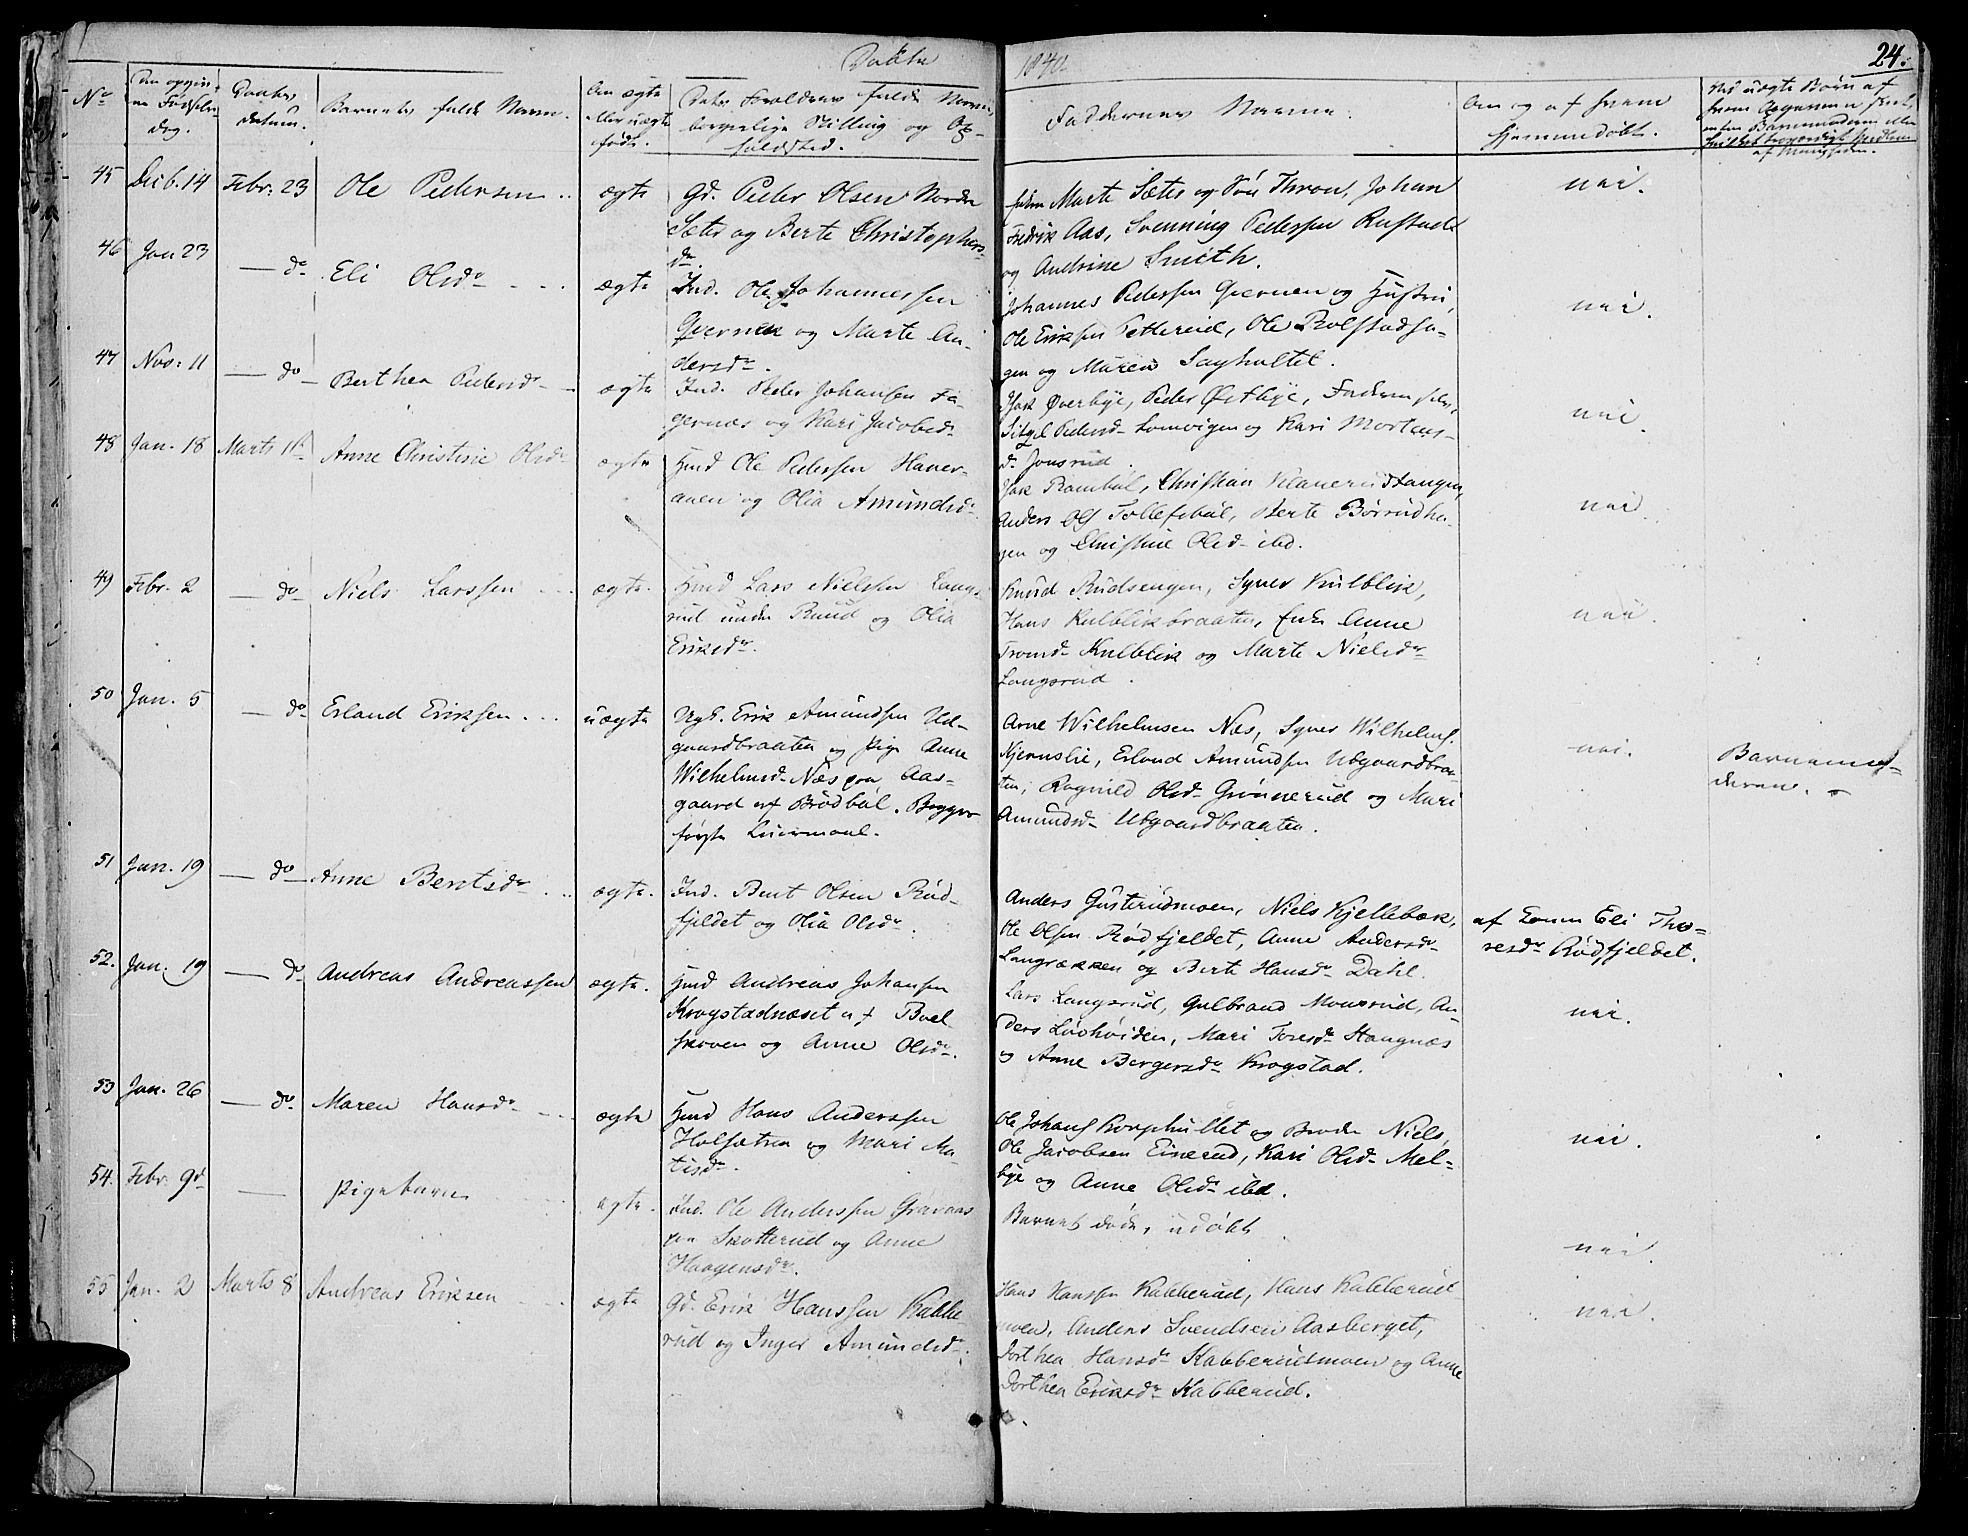 Døbte 1840. 24.
No
Daabs datum.
Barnets fulde Navn.
Om ægte eller uægte født.
Faddernes Navne.
Om og af hvem hjemmedøbt.
45 Decb. 14 Febr. 23 Ole Pedersen ægte Gd. Peder Olsen Nordre
Sæter og Berte Christophers-
dr.
Marte Sæter og Søn Thron, Johan
Fredrik Aas, Svenning Pedersen Rustad
og Andrine Smith.
nei.
46 Jan 23 — do Eli Olsdr ægte Ind. Ole Johannessen
Qvernen og Marte An-
dersdr.
Johannes Pedersen Qvernen og Hustru,
Ole Eriksen Pettereid, Ole Rolfstadha-
gen og Maren Saghultet.
nei.
47 Nov. 11 — do Berthea Pedersdr ægte Ind. Peder Johansen Fa-
gernæs og Kari Jacobsd
Isak Øverbye, Peder Østbye,
Pedersd og Kari Mortens-
d. Jonsrud.
nei.
48 Jan. 18 Marts 1st Anne Christine Olsdr ægte Hmd Ole Pedersen Haner-
aaen og Olia Amundsd
Christian Klanerudtangen,
Anders Ols Tollefsbøl, Berte Børrudha-
gen og Christine Olsd ibd.
nei
49 Febr. 2 — do Niels Larssen ægte. Hmd Lars Nielssen Langs-
rud under Ruud og Olia
Eriksdr.
Knud Rudsengen, Syver Kulblik,
Hans Kulblikbraaten, Enke Anne
Tronsd Kulblik og Marte Nielsdr
Langsrud.
nei.
50 Jan. 5 — do Erland Eriksen uægte Ungk. Erik Amundsen Ud-
gaardbraaten og Pige Anne
Wilhelmsd Næs paa Aas-
gaard af Brødbøl. Begges
første Leiermaal.
Arne Wilhelmsen Næs, Syver Wilhelms.
Kjernslie, Erland Amundsen Udgaardbraa-
ten, Ragnild Olsd Grønnerud og Mari
Amundsd Udgaardbraaten.
nei.
Barnemo-
deren.
51 Jan. 19 — do Anne Berntsdr ægte. Ind. Bernt Olsen Rød-
fjeldet og Olia Olsdr.
Anders Gusterudmoen, Niels Kjellebæk,
Ole Olsen Rødfjeldet, Anne Andersdr
Langrækken og Berte Hansdr Dahl.
af Konen Eli Tho-
resdr Rødfjeldet.
52. Jan. 19 — do Andreas Andreassen ægte. Hmd Andreas Johansen
Krogstadnæset af Boel-
skoven og Anne Olsdr.
Lars Langsrud, Gulbrand Monsrud, An-
ders Løvhøiden, Mari Toresdr Haugnæs
og Anne Bergersdr Krogstad.
nei.
53 Jan. 26 — do Maren Hansdr ægte Hmd Hans Anderssen
Holsætren og Mari Ma-
tisdr.
Ole Johans Korphultet og Broder Niels,
Ole Jacobsen Einerud, Kari Olsd Mel-
bye og Anne Olsdr ibd.
nei.
54. Febr. 9d — Pigebarn ægte. Ind. Ole Anderssen Gravaas
paa Skotterud og Anne
Haagensdr.
Barnet døde udøbt
nei
55 Jan. 2 Marts 8 Andreas Eriksen ægte Gd. Erik Hanssen Kabbe-
rud og Inger Amundsd.
Hans Hanssen Kabberud, Hans Kabberud-
moen, Anders Svendsen Aasberget,
Dorthea Hansd Kabberudmoen og Anne
Dorthea Eriksdr Kabberud.
nei.